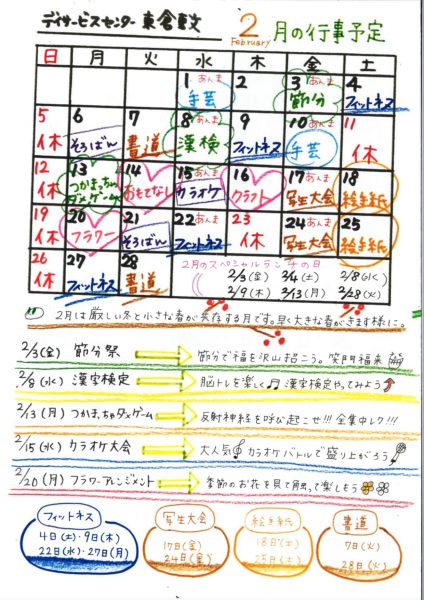 デイサービスセンター 東倉
2
February
月の行事予定
日 月 火 水 木 金 土
1 あんま 手芸
2
3 あんま 節分
4 フィットネス
5 休
6 そろばん
7 書道
8 あんま 漢検
9 フィットネス
10 あんま 手芸
11 休
12 休
13 つかまっちゃダメゲーム
14 おもてなし
15 あんま カラオケ
16 クラフト
17 あんま 写生大会
18 絵手紙
19 休
20 フラワー
21 そろばん
22 あんま フィットネス
23 休
24 あんま 写生大会
25 絵手紙
26 休
27 フィットネス
28 書道
2月のスペシャルランチの日
2/3(金) 3/4(土) 2/8(水)
2/9(木) 2/13(月) 2/28(火)
2月は厳しい冬と小さな春が共存する月です。早く大きな春がきます様に。
2/3(金) 節分祭 節分で福を沢山招こう。笑門福来
2/8(水) 漢字検定 脳トレを楽しく♫漢字検定やってみよう
2/13(月) つかまっちゃダメゲーム 反射神経を呼び起こせ!!!全集中レク!!!
2/15(水) カラオケ大会 大人気 カラオケバトルで盛り上がろう
2/20(月) フラワーアレンジメント 季節のお花を見て触って楽しもう
フィットネス
4日(土)・9日(木)
22日(水)・27日(月)
写生大会
17日(金)
24日(金)
絵手紙
18日(土)
25日(土)
書道
7日(火)
28日(火)